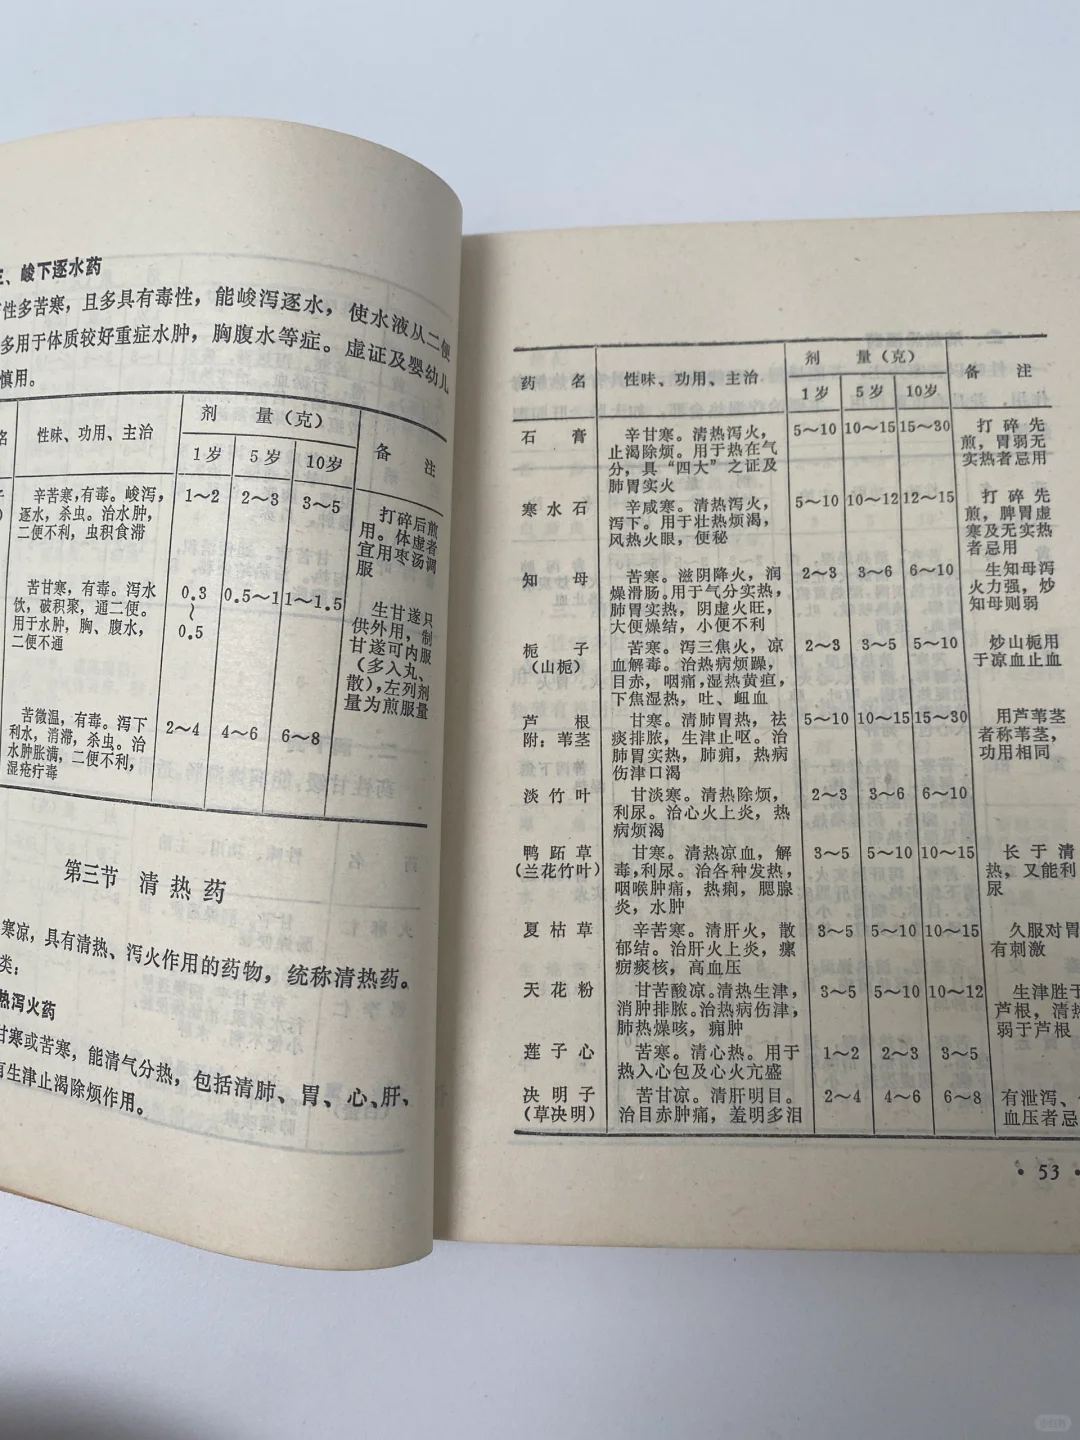 、峻下逐水药
性多苦寒，且多具有毒性，能峻泻逐水，使水液从二便
多用于体质较好重症水肿，胸腹水等症。虚证及婴幼儿
慎用。
名 性味、功用、主治 剂 量（克） 备 注
1岁 5岁 10岁
辛苦寒，有毒。峻泻，
逐水，杀虫。治水肿，
二便不利，虫积食滞
1～2 2～3 3～5
打碎后煎
用。体虚者
宜用枣汤调
服
苦甘寒，有毒。泻水
饮，破积聚，通二便。
用于水肿，胸、腹水，
二便不通
0.3
～
0.5
0.5～1 1～1.5
生甘遂只
供外用，制
甘遂可内服
（多入丸、
散），左列剂
量为煎服量
苦微温，有毒。泻下
利水，消滞，杀虫。治
水肿胀满，二便不利，
湿疮疔毒
2～4 4～6 6～8
第三节 清热药
寒凉，具有清热、泻火作用的药物，统称清热药。
类：
热泻火药
甘寒或苦寒，能清气分热，包括清肺、胃、心、肝、
有生津止渴除烦作用。
药 名 性味、功用、主治 剂 量（克） 备 注
1岁 5岁 10岁
石 膏
辛甘寒。清热泻火，
止渴除烦。用于热在气
分，具“四大”之证及
肺胃实火
5～10 10～15 15～30
打碎先
煎，胃弱无
实热者忌用
寒水石
辛咸寒。清热泻火，
泻下。用于壮热烦渴，
风热火眼，便秘
5～10 10～12 12～15
打碎先
煎，脾胃虚
寒及无实热
者忌用
知 母
苦寒。滋阴降火，润
燥滑肠。用于气分实热，
肺胃实热，阴虚火旺，
大便燥结，小便不利
2～3 3～6 6～10
生知母泻
火力强，炒
知母则弱
栀 子
（山栀）
苦寒。泻三焦火，凉
血解毒。治热病烦躁，
目赤，咽痛，湿热黄疸，
下焦湿热，吐、衄血
2～3 3～5 5～10
炒山栀用
于凉血止血
芦 根
附：苇茎
甘寒。清肺胃热，祛
痰排脓，生津止呕。治
肺胃实热，肺痈，热病
伤津口渴
5～10 10～15 15～30
用芦苇茎
者称苇茎，
功用相同
淡竹叶
甘淡寒。清热除烦，
利尿。治心火上炎，热
病烦渴
2～3 3～6 6～10
鸭跖草
（兰花竹叶）
甘寒。清热凉血，解
毒，利尿。治各种发热，
咽喉肿痛，热痢，腮腺
炎，水肿
3～5 5～10 10～15
长于清
热，又能利
尿
夏枯草
辛苦寒。清肝火，散
郁结。治肝火上炎，瘰
疬痰核，高血压
3～5 5～10 10～15
久服对胃
有刺激
天花粉
甘苦酸凉。清热生津，
消肿排脓。治热病伤津，
肺热燥咳，痈肿
3～5 5～10 10～12
生津胜于
芦根，清热
弱于芦根
莲子心
苦寒。清心热。用于
热入心包及心火亢盛
1～2 2～3 3～5
决明子
（草决明）
苦甘凉。清肝明目。
治目赤肿痛，羞明多泪
2～4 4～6 6～8
有泄泻、
血压者忌
• 53 •